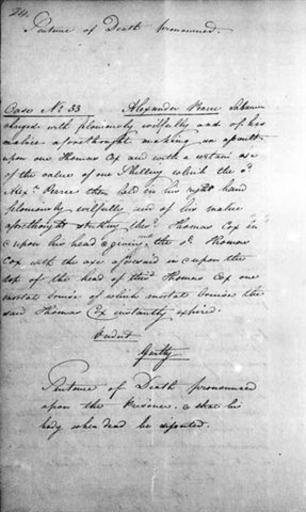 24.
Sentence of Death pronounced.
Case No. 33 Alexander Pearce Labourer
charged with feloniously wilfully and of his
malice aforethought making an assault
upon one Thomas Cox and with a certain axe
of the value of one Shilling which the sd
Alexr Pearce then held in his right hand
feloniously wilfully and of his malice
aforethought striking the sd Thomas Cox in
& upon his head & giving the sd Thomas
Cox with the axe aforesaid in & upon the
top of the head of the sd Thomas Cox one
mortal bruise of which mortal bruise the
said Thomas Cox instantly expired.
Verdict
Guilty
Sentence of Death pronounced
upon the Prisoner & that his
body when dead be dissected.